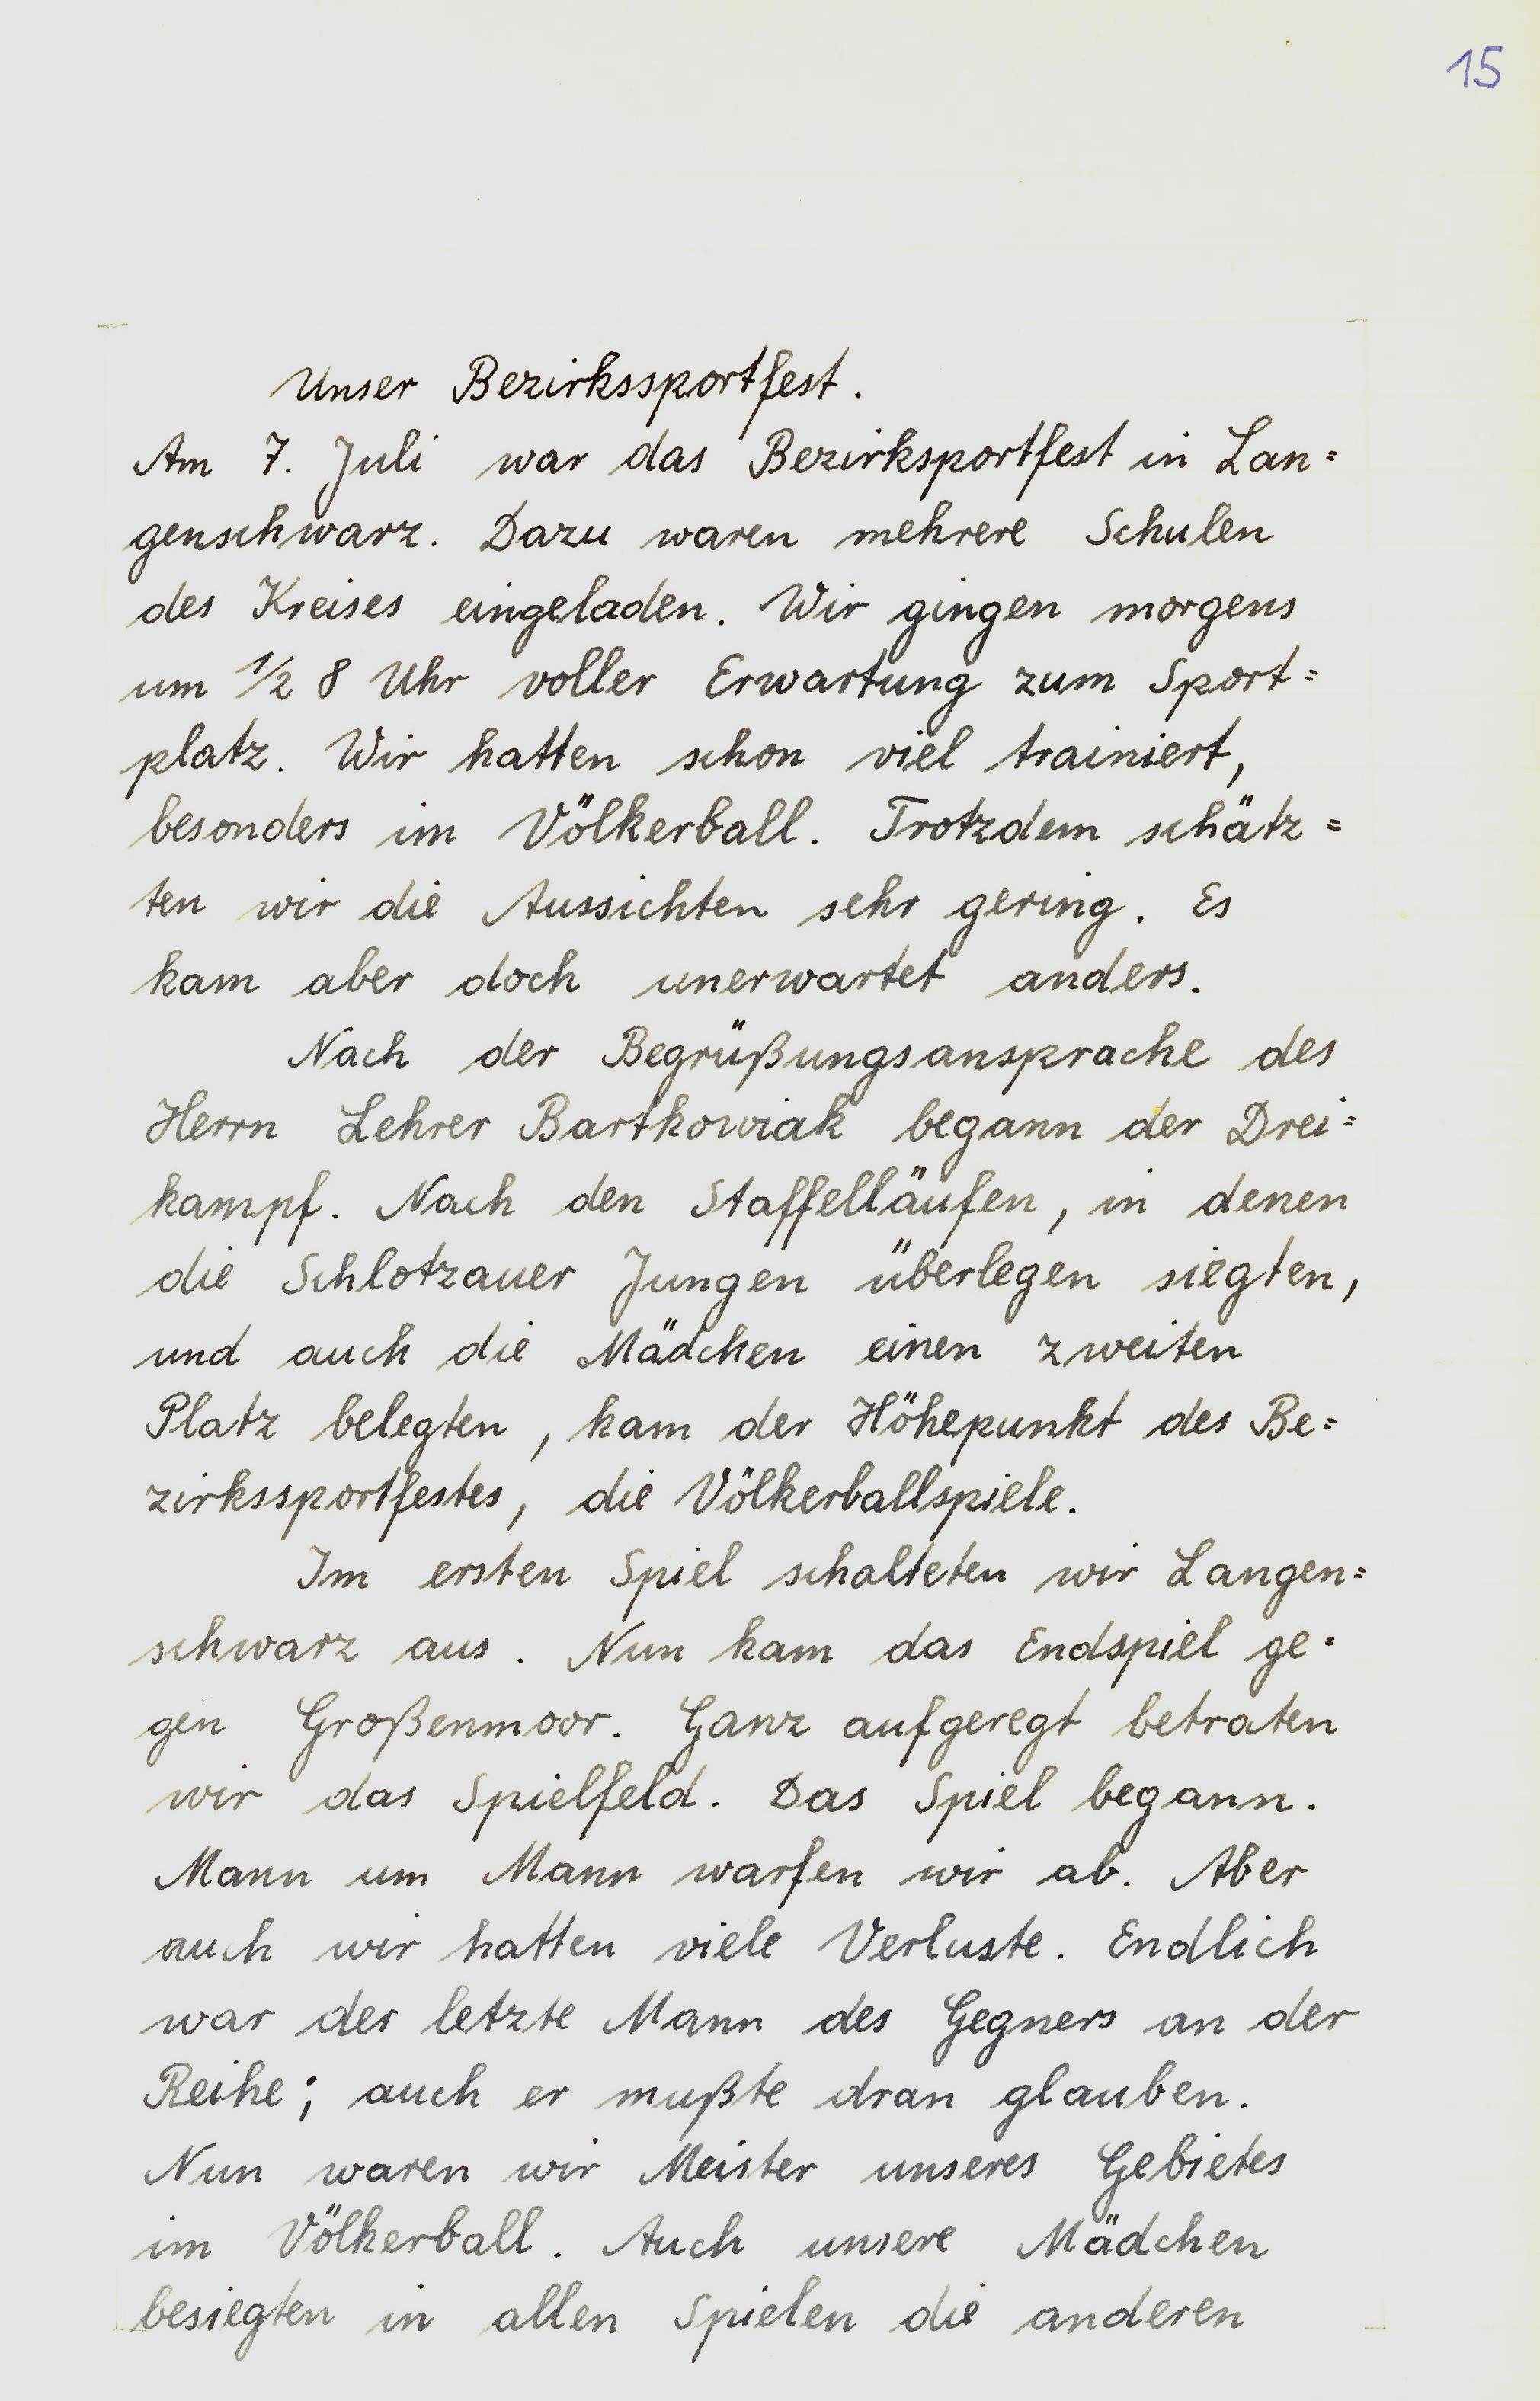 15
Unser Bezirkssportfest.
Am 7. Juli war das Bezirksportfest in Lan=
genschwarz. Dazu waren mehrere Schulen
des Kreises eingeladen. Wir gingen morgens
um 1/2 8 Uhr voller Erwartung zum Sport=
platz. Wir hatten schon viel trainiert,
besonders im Völkerball. Trotzdem schätz=
ten wir die Aussichten sehr gering. Es
kam aber doch unerwartet anders.
Nach der Begrüßungsansprache des
Herrn Lehrer Bartkowiak begann der Drei=
kampf. Nach den Staffelläufen, in denen
die Schlotzauer Jungen überlegen siegten,
und auch die Mädchen einen zweiten
Platz belegten, kam der Höhepunkt des Be=
zirkssportfestes, die Völkerballspiele.
Im ersten Spiel schalteten wir Langen=
schwarz aus. Nun kam das Endspiel ge=
gen Großenmoor. Ganz aufgeregt betraten
wir das Spielfeld. Das Spiel begann.
Mann um Mann warfen wir ab. Aber
auch wir hatten viele Verluste. Endlich
war der letzte Mann des Gegners an der
Reihe; auch er mußte dran glauben.
Nun waren wir Meister unseres Gebietes
im Völkerball. Auch unsere Mädchen
besiegten in allen Spielen die anderen